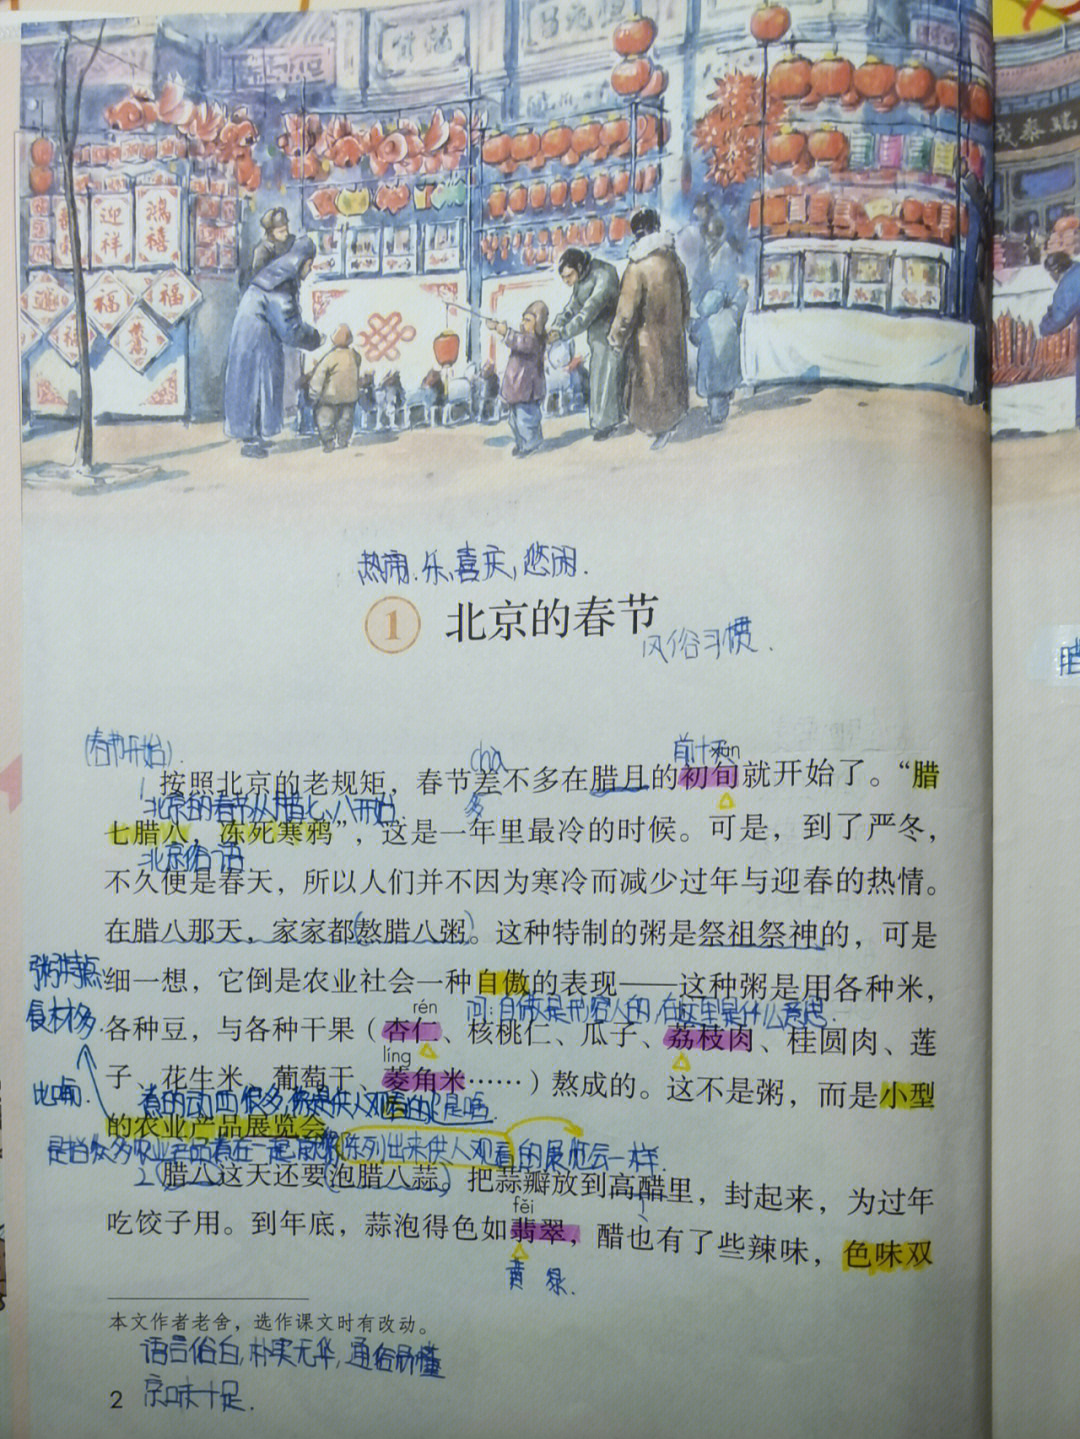 迎祥
鸿禧
福
福
福
热闹、乐、喜庆,悠闲.
1 北京的春节
风俗习惯.
(春节开始).
chà
前十天
xún
1.按照北京的老规矩,春节差不多在腊月的初旬就开始了。“腊
北京的春节从腊七、八开始.
多
七腊八,冻死寒鸦”,这是一年里最冷的时候。可是,到了严冬,
北京俗语
不久便是春天,所以人们并不因为寒冷而减少过年与迎春的热情。
在腊八那天,家家都(熬腊八粥)。这种特制的粥是祭祖祭神的,可是
粥特点
细一想,它倒是农业社会一种自傲的表现——这种粥是用各种米,
食材多.
rén
问:自傲是形容人的,在这里是什么意思.
各种豆,与各种干果(杏仁、核桃仁、瓜子、荔枝肉、桂圆肉、莲
líng
子、花生米、葡萄干、菱角米……)熬成的。这不是粥,而是小型
比喻.
的农业产品展览会。
陈列出来供人观看的展览会一样.
2.(腊八这天还要(泡腊八蒜)。把蒜瓣放到高醋里,封起来,为过年
fěi
吃饺子用。到年底,蒜泡得色如翡翠,醋也有了些辣味,色味双
黄 绿.
本文作者老舍,选作课文时有改动。
语言俗白,朴实无华,通俗易懂
2
京味十足.